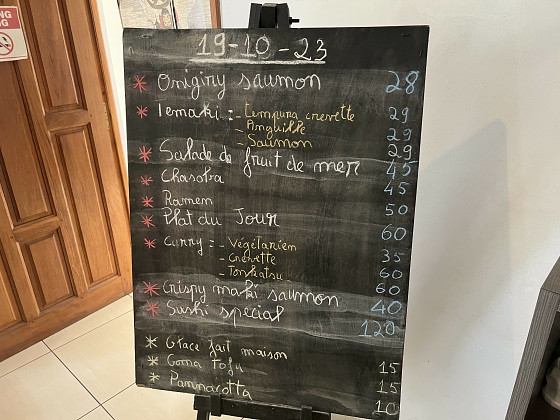 NG
NG
19-10-23
* Onigiry saumon 28
* Temaki :- Tempura crevette 29
- Anguille 29
- Saumon 29
* Salade de fruit de mer 45
* Chasoba 45
* Ramen 50
* Plat du Jour 60
* Curry :- Végétarien 35
- Crevette 60
- Tonkatsu 60
* Crispy maki saumon 40
* Sushi special 120
* Glace fait maison 15
* Goma tofu 15
* Pannacotta 10